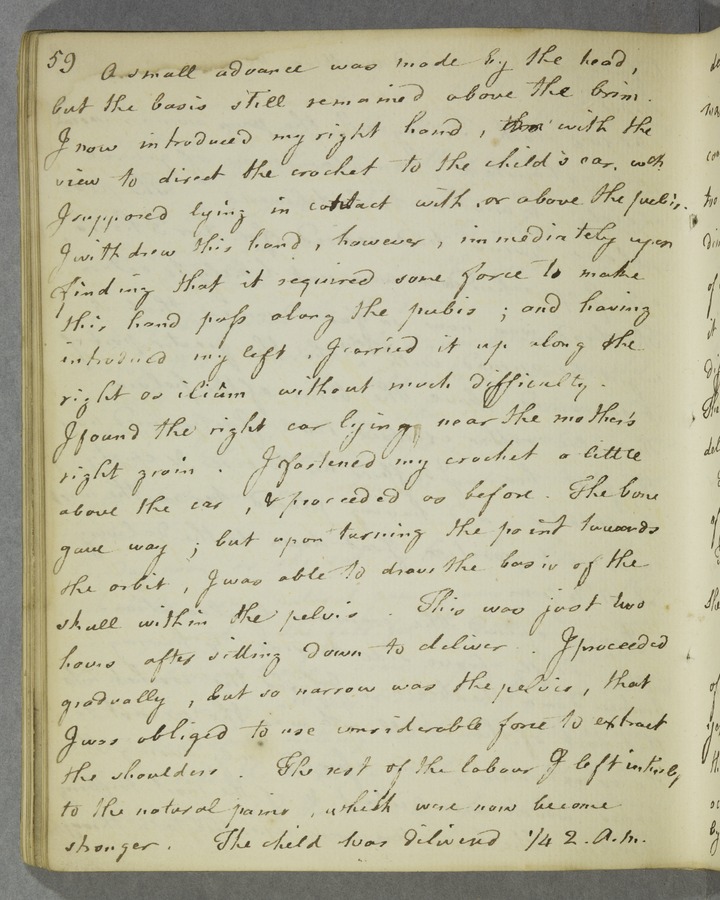 59 A small advance was made by the head,
but the basis still remained above the brim.
I now introduced my right hand, with the
view to direct the crochet to the child's ear, wch
I supposed lying in contact with, or above the pubis.
I withdrew this hand, however, immediately upon
finding that it required some force to make
this hand pass along the pubis; and having
introduced my left, I carried it up along the
right os ilium without much difficulty.
I found the right ear lying near the mother's
right groin. I fastened my crochet a little
above the ear, & proceeded as before. The bone
gave way; but upon turning the point towards
the orbit, I was able to draw the basis of the
skull within the pelvis. This was just two
hours after sitting down to deliver. I proceeded
gradually, but so narrow was the pelvis, that
I was obliged to use considerable force to extract
the shoulders. The rest of the labour I left intirely
to the natural pains, which were now become
stronger. The child was delivered 1/4 2. A.m.